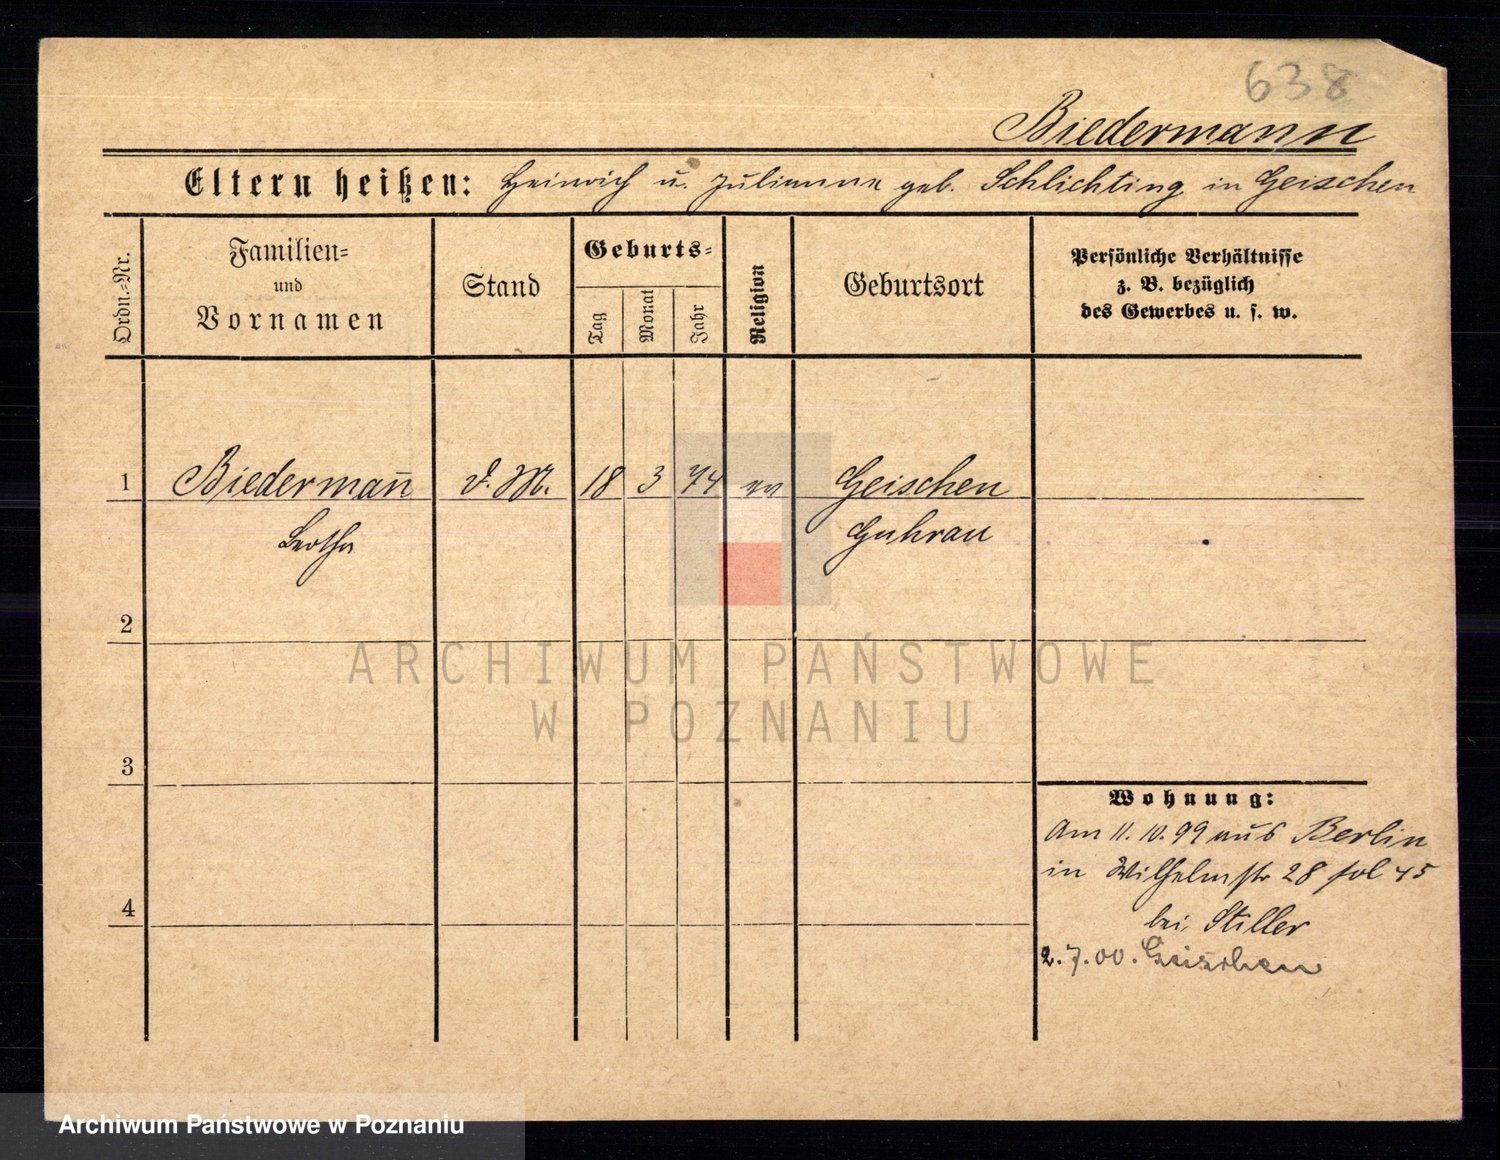 638
Biedermann
Eltern heißen: Heinrich u. Julianna geb. Schlichting in Geischen
Ordn.-Nr.
Familien-
und
Vornamen
Stand
Geburts-
Tag
Monat
Jahr
Religion
Geburtsort
Persönliche Verhältnisse
z. B. bezüglich
des Gewerbes u. s. w.
1 Biederman̄ d. M. 18 3 74 ev Geischen
Bertha Guhrau
2
ARCHIWUM PAŃSTWOWE
W POZNANIU
3
Wohnung:
Am 11. 10. 99 aus Berlin
in Wilhelmstr 28 fol 45
4
bei Stiller
2. 7. 00. Geischen
Archiwum Państwowe w Poznaniu